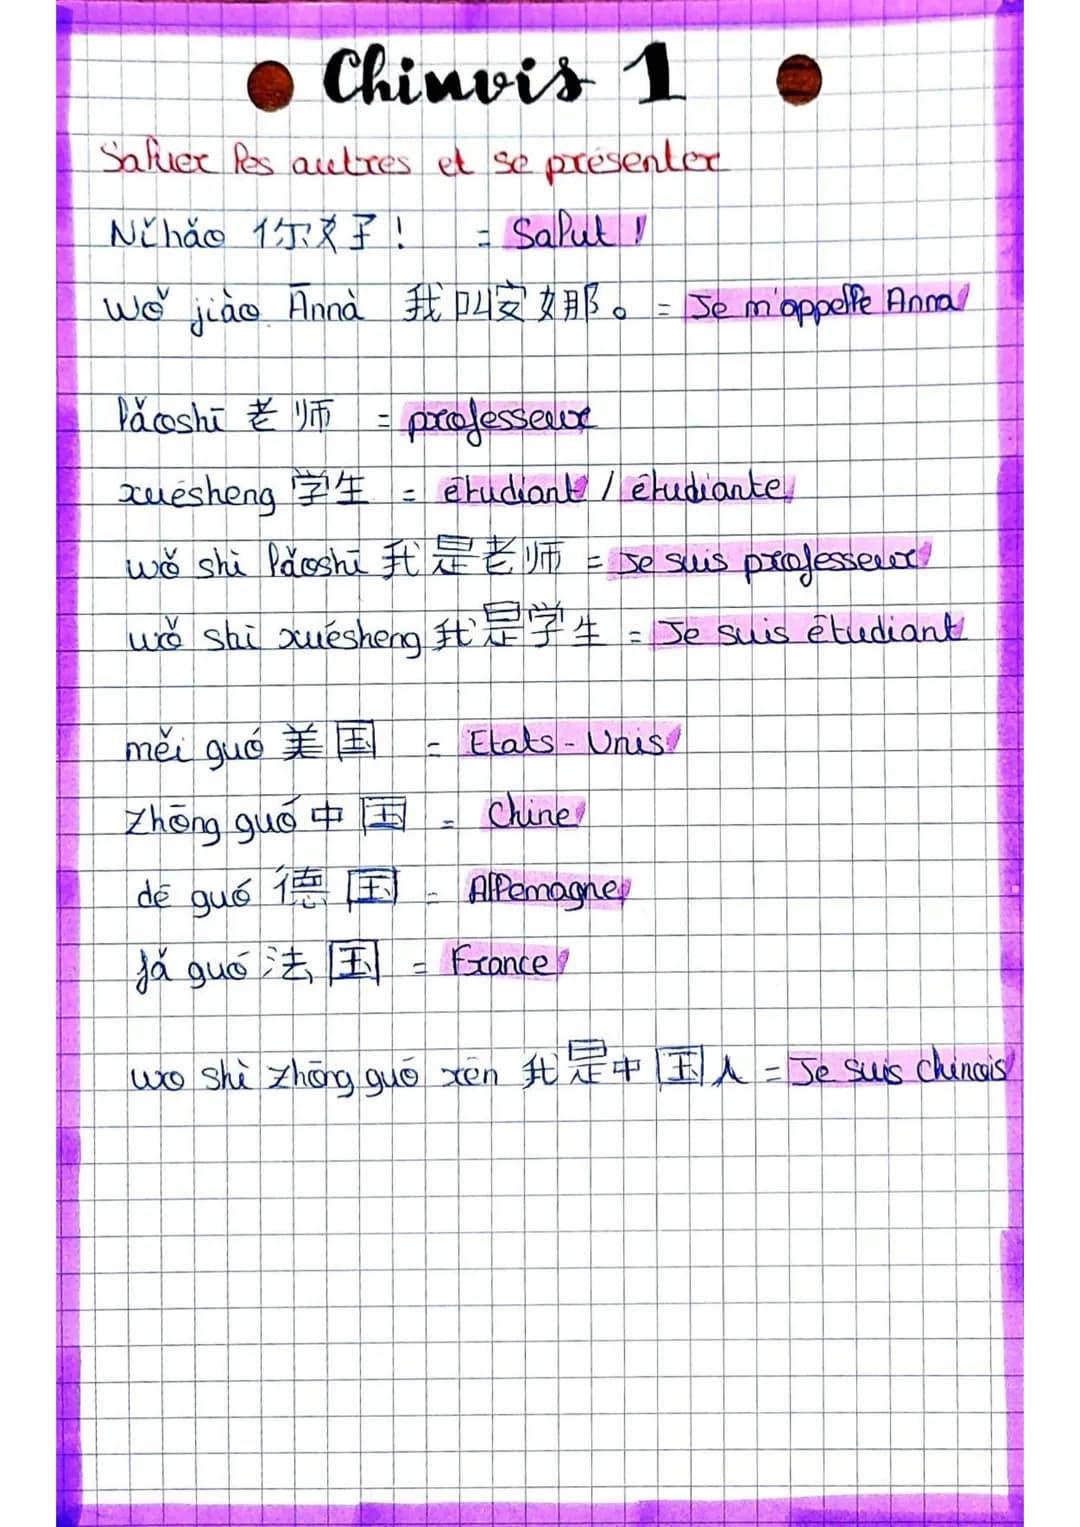 Chinois 1
Saluer les autres et se présenter
Nǐhǎo 你好! = Salut !
Wǒ jiào Ānnà 我叫安娜。= Je m'appelle Anna
lǎoshī 老师 = professeur
xuésheng 学生 = étudiant / étudiante
wǒ shì lǎoshī 我是老师 = Je suis professeur
wǒ shì xuésheng 我是学生 = Je suis étudiant
měi guó 美国 = Etats-Unis
Zhōng guó 中国 = Chine
dé guó 德国 = Allemagne
fǎ guó 法国 = France
wo shì zhōng guó rén 我是中国人 = Je suis chinois